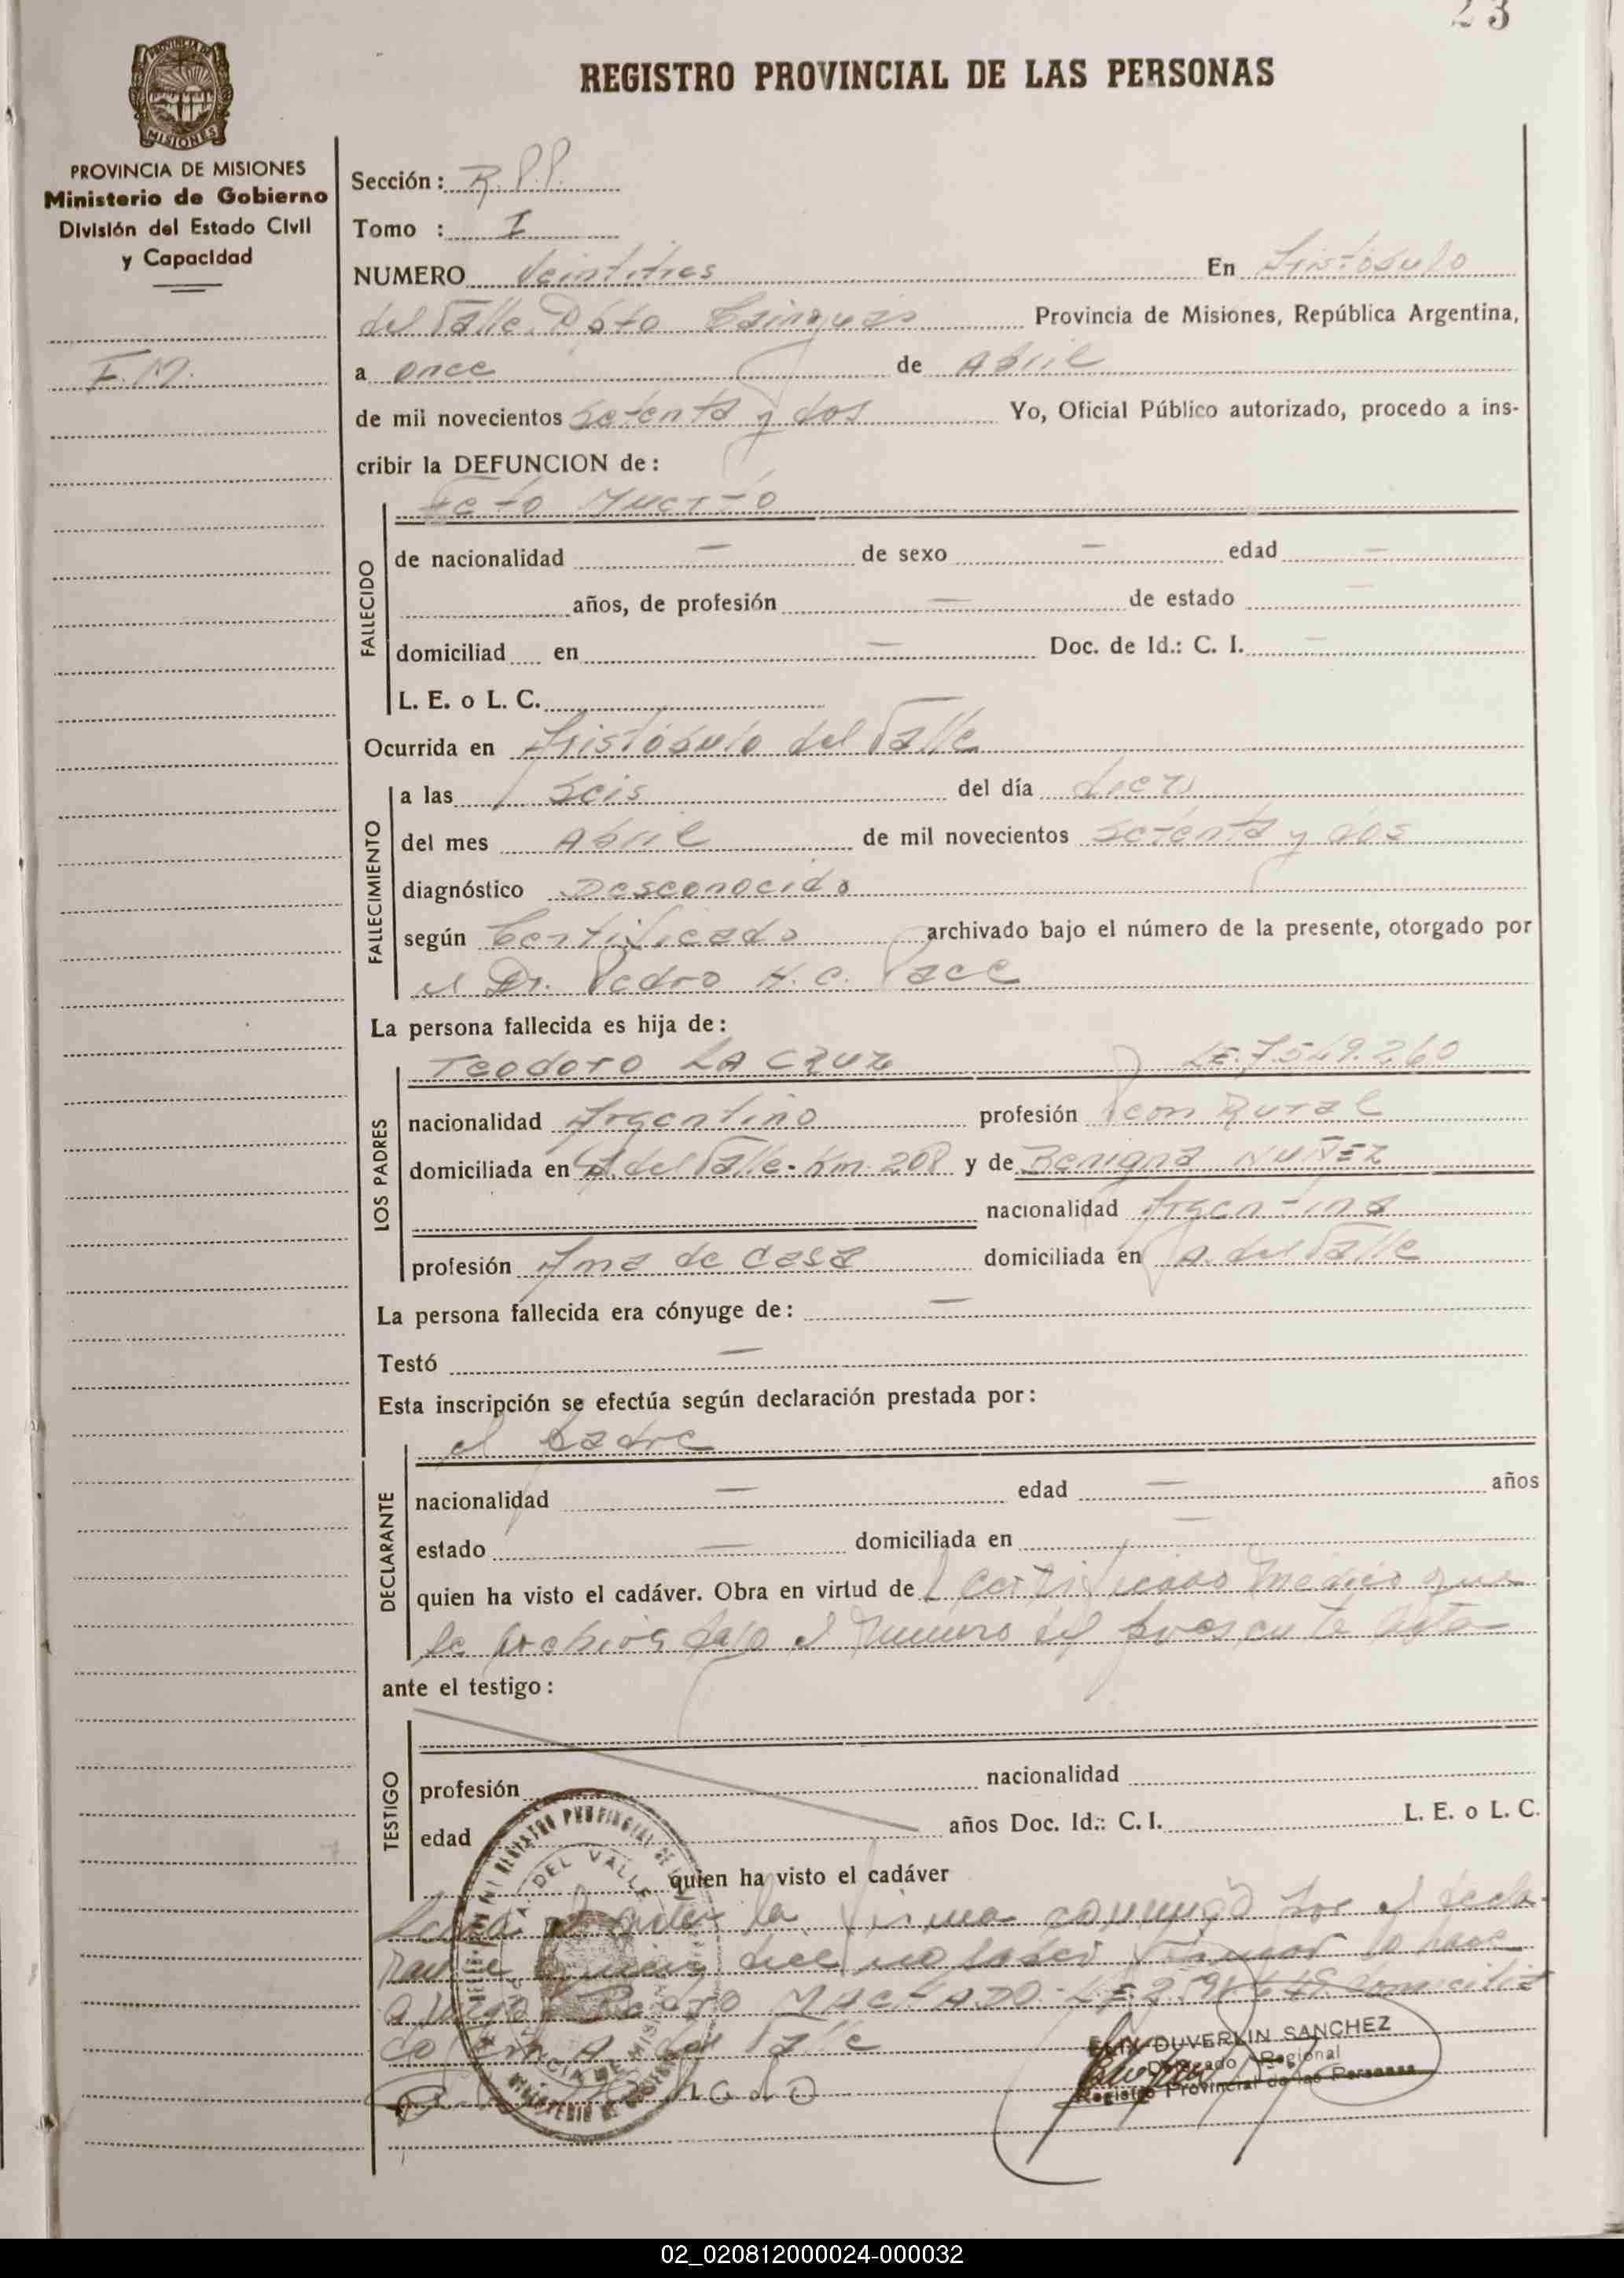 23
REGISTRO PROVINCIAL DE LAS PERSONAS
PROVINCIA DE MISIONES
MISIONES
PROVINCIA DE MISIONES
Ministerio de Gobierno
División del Estado Civil
y Capacidad
F.M.
Sección: R.P.P.
Tomo : I
NUMERO Veintitres En Aristóbulo
del Valle. Dpto Cainguas Provincia de Misiones, República Argentina,
a once de Abril
de mil novecientos setenta y dos Yo, Oficial Público autorizado, procedo a ins-
cribir la DEFUNCION de:
Feto Muerto
FALLECIDO
de nacionalidad — de sexo — edad —
años, de profesión — de estado —
domiciliad en — Doc. de Id.: C. I. —
L. E. o L. C.
Ocurrida en Aristóbulo del Valle
FALLECIMIENTO
a las seis del día diez
del mes Abril de mil novecientos setenta y dos
diagnóstico Desconocido
según Certificado archivado bajo el número de la presente, otorgado por
el Dr. Pedro H. C. Pace
La persona fallecida es hija de:
LOS PADRES
Teodoro LA CRUZ LE.7.549.260
nacionalidad Argentino profesión Peon Rural
domiciliada en A. del Valle. Km. 208 y de Benigna NUÑEZ
nacionalidad Argentina
profesión Ama de Casa domiciliada en A. del Valle
La persona fallecida era cónyuge de: —
Testó —
Esta inscripción se efectúa según declaración prestada por:
DECLARANTE
el padre
nacionalidad — edad — años
estado — domiciliada en —
quien ha visto el cadáver. Obra en virtud de l certificado médico que
se archiva bajo el número del presente acta
ante el testigo:
TESTIGO
profesión nacionalidad
edad años Doc. Id.: C. I. L. E. o L. C.
quien ha visto el cadáver
la firma conmigo por el decla-
rante quien dice no saber firmar lo hace
a ruego Pedro MACHADO. domicilia
do en A. del Valle
DEL VALLE
DUVERLIN SANCHEZ
Delegado Regional
Registro Provincial de las Personas
02_020812000024-000032